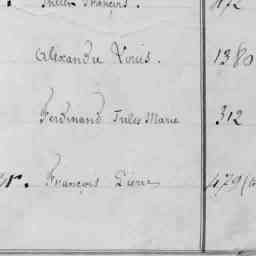 François. 472
Alexandre Louis. 1380
Ferdinand Jules Marie 312
François Pierre 479